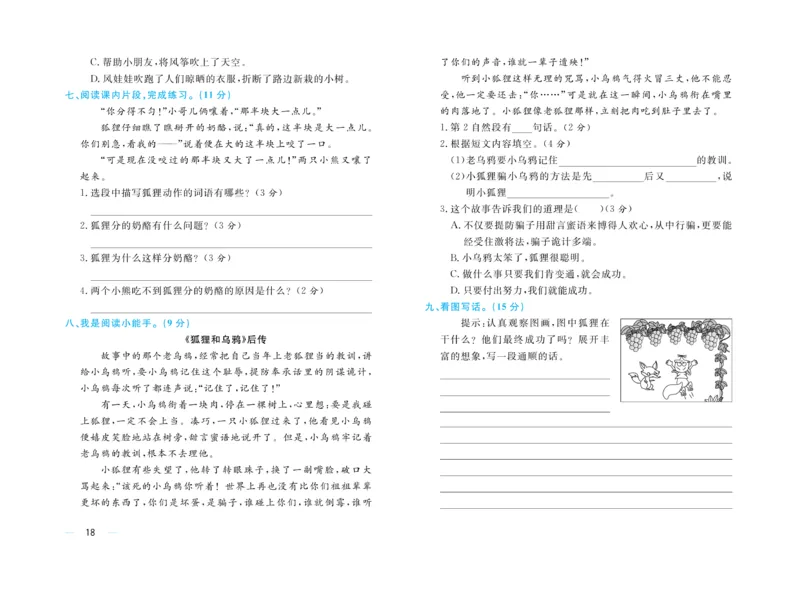 C. 帮助小朋友,将风筝吹上了天空。
D. 风娃娃吹跑了人们晾晒的衣服,折断了路边新栽的小树。
七、阅读课内片段,完成练习。(11 分)
“你分得不匀!”小哥儿俩嚷着,“那半块大一点儿。”
狐狸仔细瞧了瞧掰开的奶酪,说:“真的,这半块是大一点儿。
你们别急,看我的——”说着便在大的这半块上咬了一口。
“可是现在没咬过的那半块又大了一点儿!”两只小熊又嚷了
起来。
1. 选段中描写狐狸动作的词语有哪些?(3 分)
2. 狐狸分的奶酪有什么问题?(3 分)
3. 狐狸为什么这样分奶酪?(3 分)
4. 两个小熊吃不到狐狸分的奶酪的原因是什么?(2 分)
八、我是阅读小能手。(9 分)
《狐狸和乌鸦》后传
故事中的那个老乌鸦,经常把自己当年上老狐狸当的教训,讲
给小乌鸦听,要小乌鸦记住这个耻辱,提防奉承话里的阴谋诡计,
小乌鸦每次听了都连声说:“记住了,记住了!”
有一天,小乌鸦衔着一块肉,停在一棵树上,心里想:要是我碰
上狐狸,一定不会上当。凑巧,一只小狐狸过来了,他看见小乌鸦
便嬉皮笑脸地站在树旁,甜言蜜语地说开了。但是,小乌鸦牢记着
老乌鸦的教训,根本不去理他。
小狐狸有些失望了,他转了转眼珠子,换了一副嘴脸,破口大
骂起来:“该死的小乌鸦你听着!世界上再也没有比你们祖祖辈辈
更坏的东西了,你们是坏蛋,是骗子,谁碰上你们,谁就倒霉,谁听
18
了你们的声音,谁就一辈子遗殃!”
听到小狐狸这样无理的咒骂,小乌鸦气得火冒三丈,他不能忍
受,他一定要还击:“你……”可是就在这一瞬间,小乌鸦衔在嘴里
的肉落地了。小狐狸像老狐狸那样,立刻把肉吃到肚子里去了。
1. 第 2 自然段有____句话。(2 分)
2. 根据短文内容填空。(4 分)
(1)老乌鸦要小乌鸦记住____________________的教训。
(2)小狐狸骗小乌鸦的方法是先__________后又__________,说
明小狐狸____________________。
3. 这个故事告诉我们的道理是(    )(3 分)
A. 不仅要提防骗子用甜言蜜语来博得人欢心,从中行骗,更要能
经受住激将法,骗子诡计多端。
B. 小乌鸦太笨了,狐狸很聪明。
C. 做什么事只要我们肯变通,就会成功。
D. 只要付出努力,我们就能成功。
九、看图写话。(15 分)
提示:认真观察图画,图中狐狸在
干什么?他们最终成功了吗?展开丰
富的想象,写一段通顺的话。